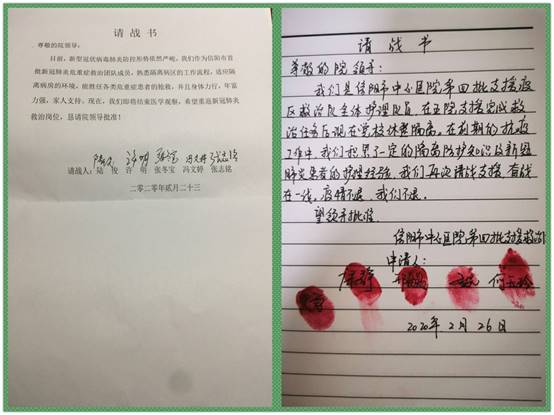 请 战 书
尊敬的院领导：
目前，新型冠状病毒肺炎防控形势依然严峻，我们作为信阳市首
批新冠肺炎危重症救治团队成员，熟悉隔离病区的工作流程，适应隔
离病房的环境，能胜任各类危重症患者的抢救，并且身体力行，年富
力强，家人支持。现在，我们即将结束医学观察，希望重返新冠肺炎
救治岗位，恳请院领导批准！
请战人：陆 俊 许 明 张冬宝 冯文婷 张志铭
二零二零年贰月二十三
请 战 书
尊敬的院领导：
我们是信阳市中心医院第四批支援疫
区救治队全体护理队员，在五院支援完成救
治任务后现在学校休整隔离。在前期的抗疫
工作中，我们积累了一定的隔离防护知识及新冠
肺炎患者的护理经验，我们再次请战支援，奋战
在一线。疫情不退，我们不退。
望领导批准
信阳市中心医院第四批支援救治队
申请人：
2020年2月26日